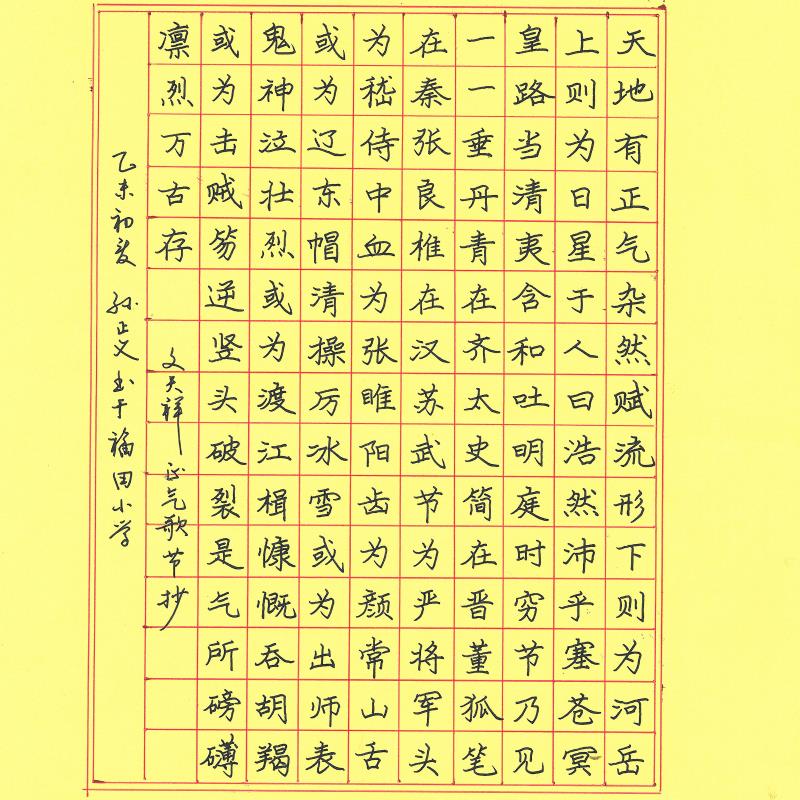 天地有正气杂然赋流形下则为河岳
上则为日星于人曰浩然沛乎塞苍冥
皇路当清夷含和吐明庭时穷节乃见
一一垂丹青在齐太史简在晋董狐笔
在秦张良椎在汉苏武节为严将军头
为嵇侍中血为张睢阳齿为颜常山舌
或为辽东帽清操厉冰雪或为出师表
鬼神泣壮烈或为渡江楫慷慨吞胡羯
或为击贼笏逆竖头破裂是气所磅礴
凛烈万古存
文天祥正气歌节抄
乙未初夏 孙正义书于福田小学